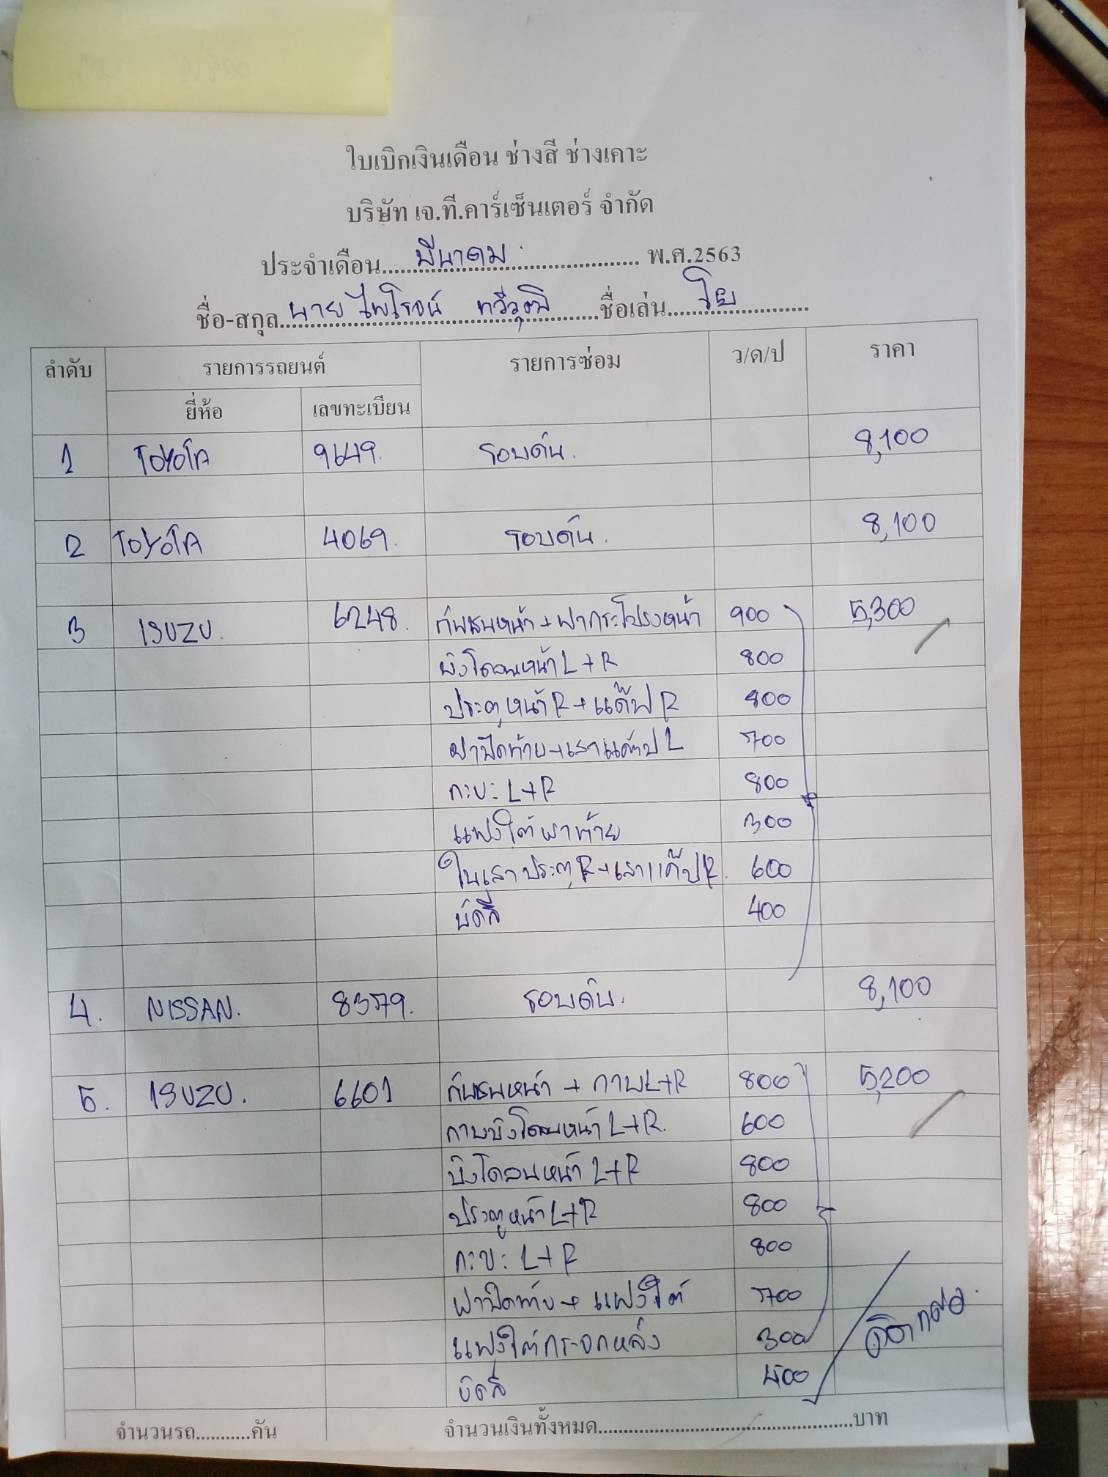 ใบเบิกเงินเดือน ช่างสี ช่างเคาะ
บริษัท เจ.ที.คาร์เซ็นเตอร์ จำกัด
ประจำเดือน....มีนาคม.... พ.ศ.2563
ชื่อ-สกุล..นายไพโรจน์ ทวีวุฒิ....ชื่อเล่น....โย....
ลำดับ รายการรถยนต์ รายการซ่อม ว/ด/ป ราคา
ยี่ห้อ เลขทะเบียน
1 TOYOTA 9649. รอบคัน. 8,100
2 TOYOTA 4069. รอบคัน. 8,100
3 ISUZU. 6248. กันชนหน้า+ฝากระโปรงหน้า 900 5,300
บังโคลนหน้า L+R 800
ประตูหน้า R+แค๊ป R 800
ฝาปิดท้าย+เสาแค๊ป L 700
กะบะ L+R 800
แผงใต้ฝาท้าย 300
ในเสาประตู R+เสาแค๊ป R. 600
ขัดสี 400
4. NISSAN. 8379. รอบคัน. 8,100
5. ISUZU. 6601 กันชนหน้า + กาบ L+R 800 5,200
กาบบังโคลนหน้า L+R. 600
บังโคลนหน้า L+R 800
ประตูหน้า L+R 800
กะบะ L+R 800
ฝาปิดท้าย + แผงใต้ 700
แผงใต้กระจกหลัง 300
ขัดสี 400
จำนวนรถ..........คัน จำนวนเงินทั้งหมด..................................................บาท